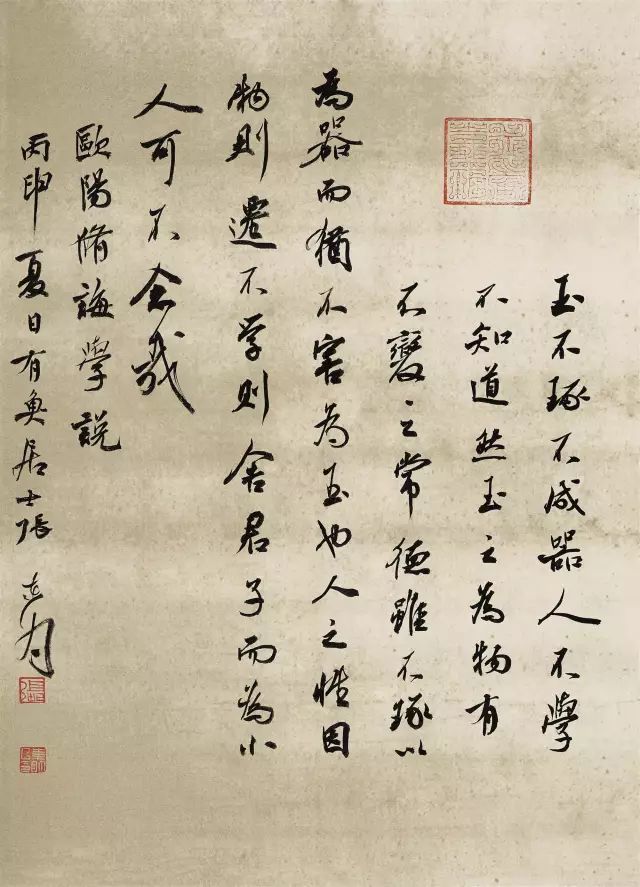 玉不琢不成器人不學
不知道然玉之為物有
不變之常德雖不琢以
為器而猶不害為玉也人之性因
物則遷不學則舍君子而為小
人可不念哉
歐陽脩誨學說
丙申夏日有奐居士張志有